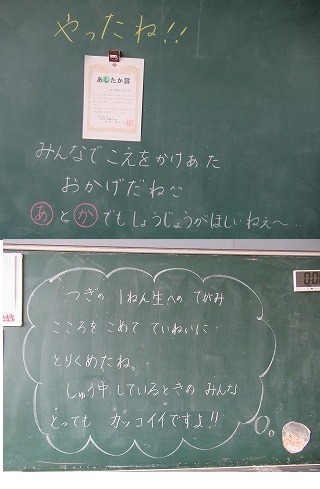 やったね!!
あしたか賞
みんなでこえをかけあた
おかげだね
あとかでもしょうじょうがほしいねぇ〜…
つぎの 1ねん生への てがみ
こころを こめて ていねいに
とりくめたね。
しゅう中しているときの みんな
とっても カッコイイですよ!!